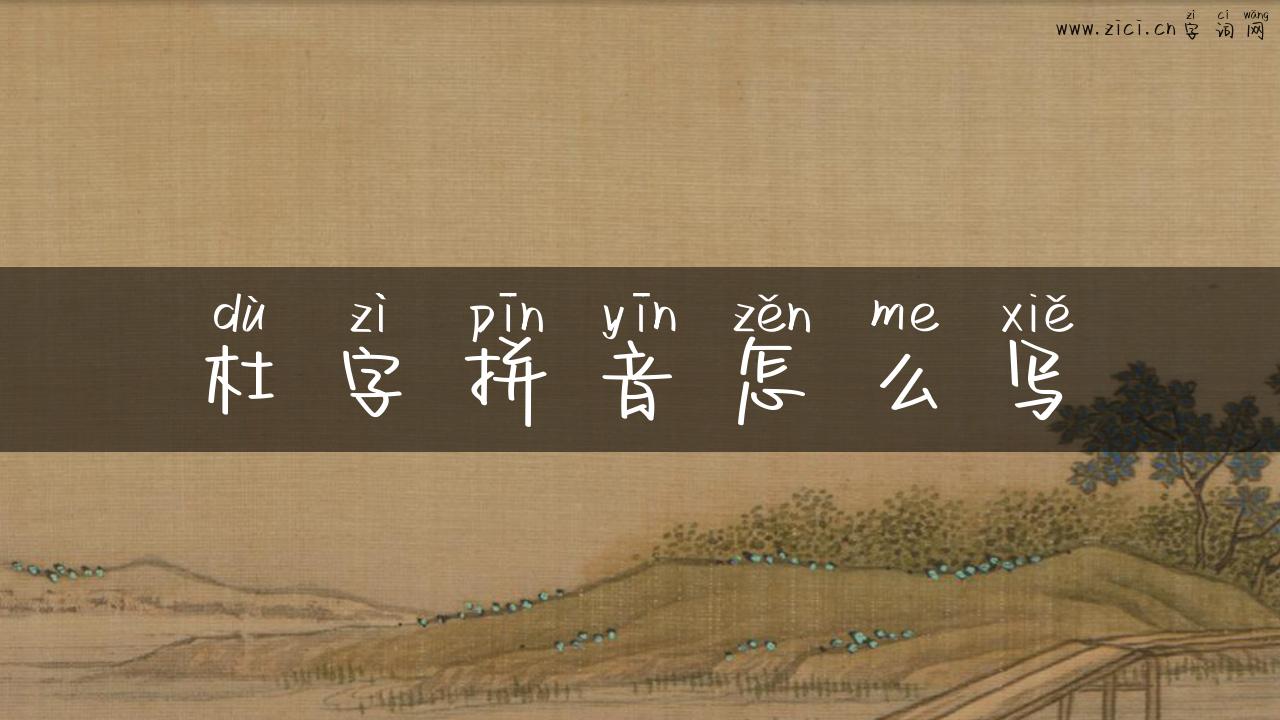 zì cí wǎng
www.zici.cn字词网
dù zì pīn yīn zěn me xiě
杜字拼音怎么写